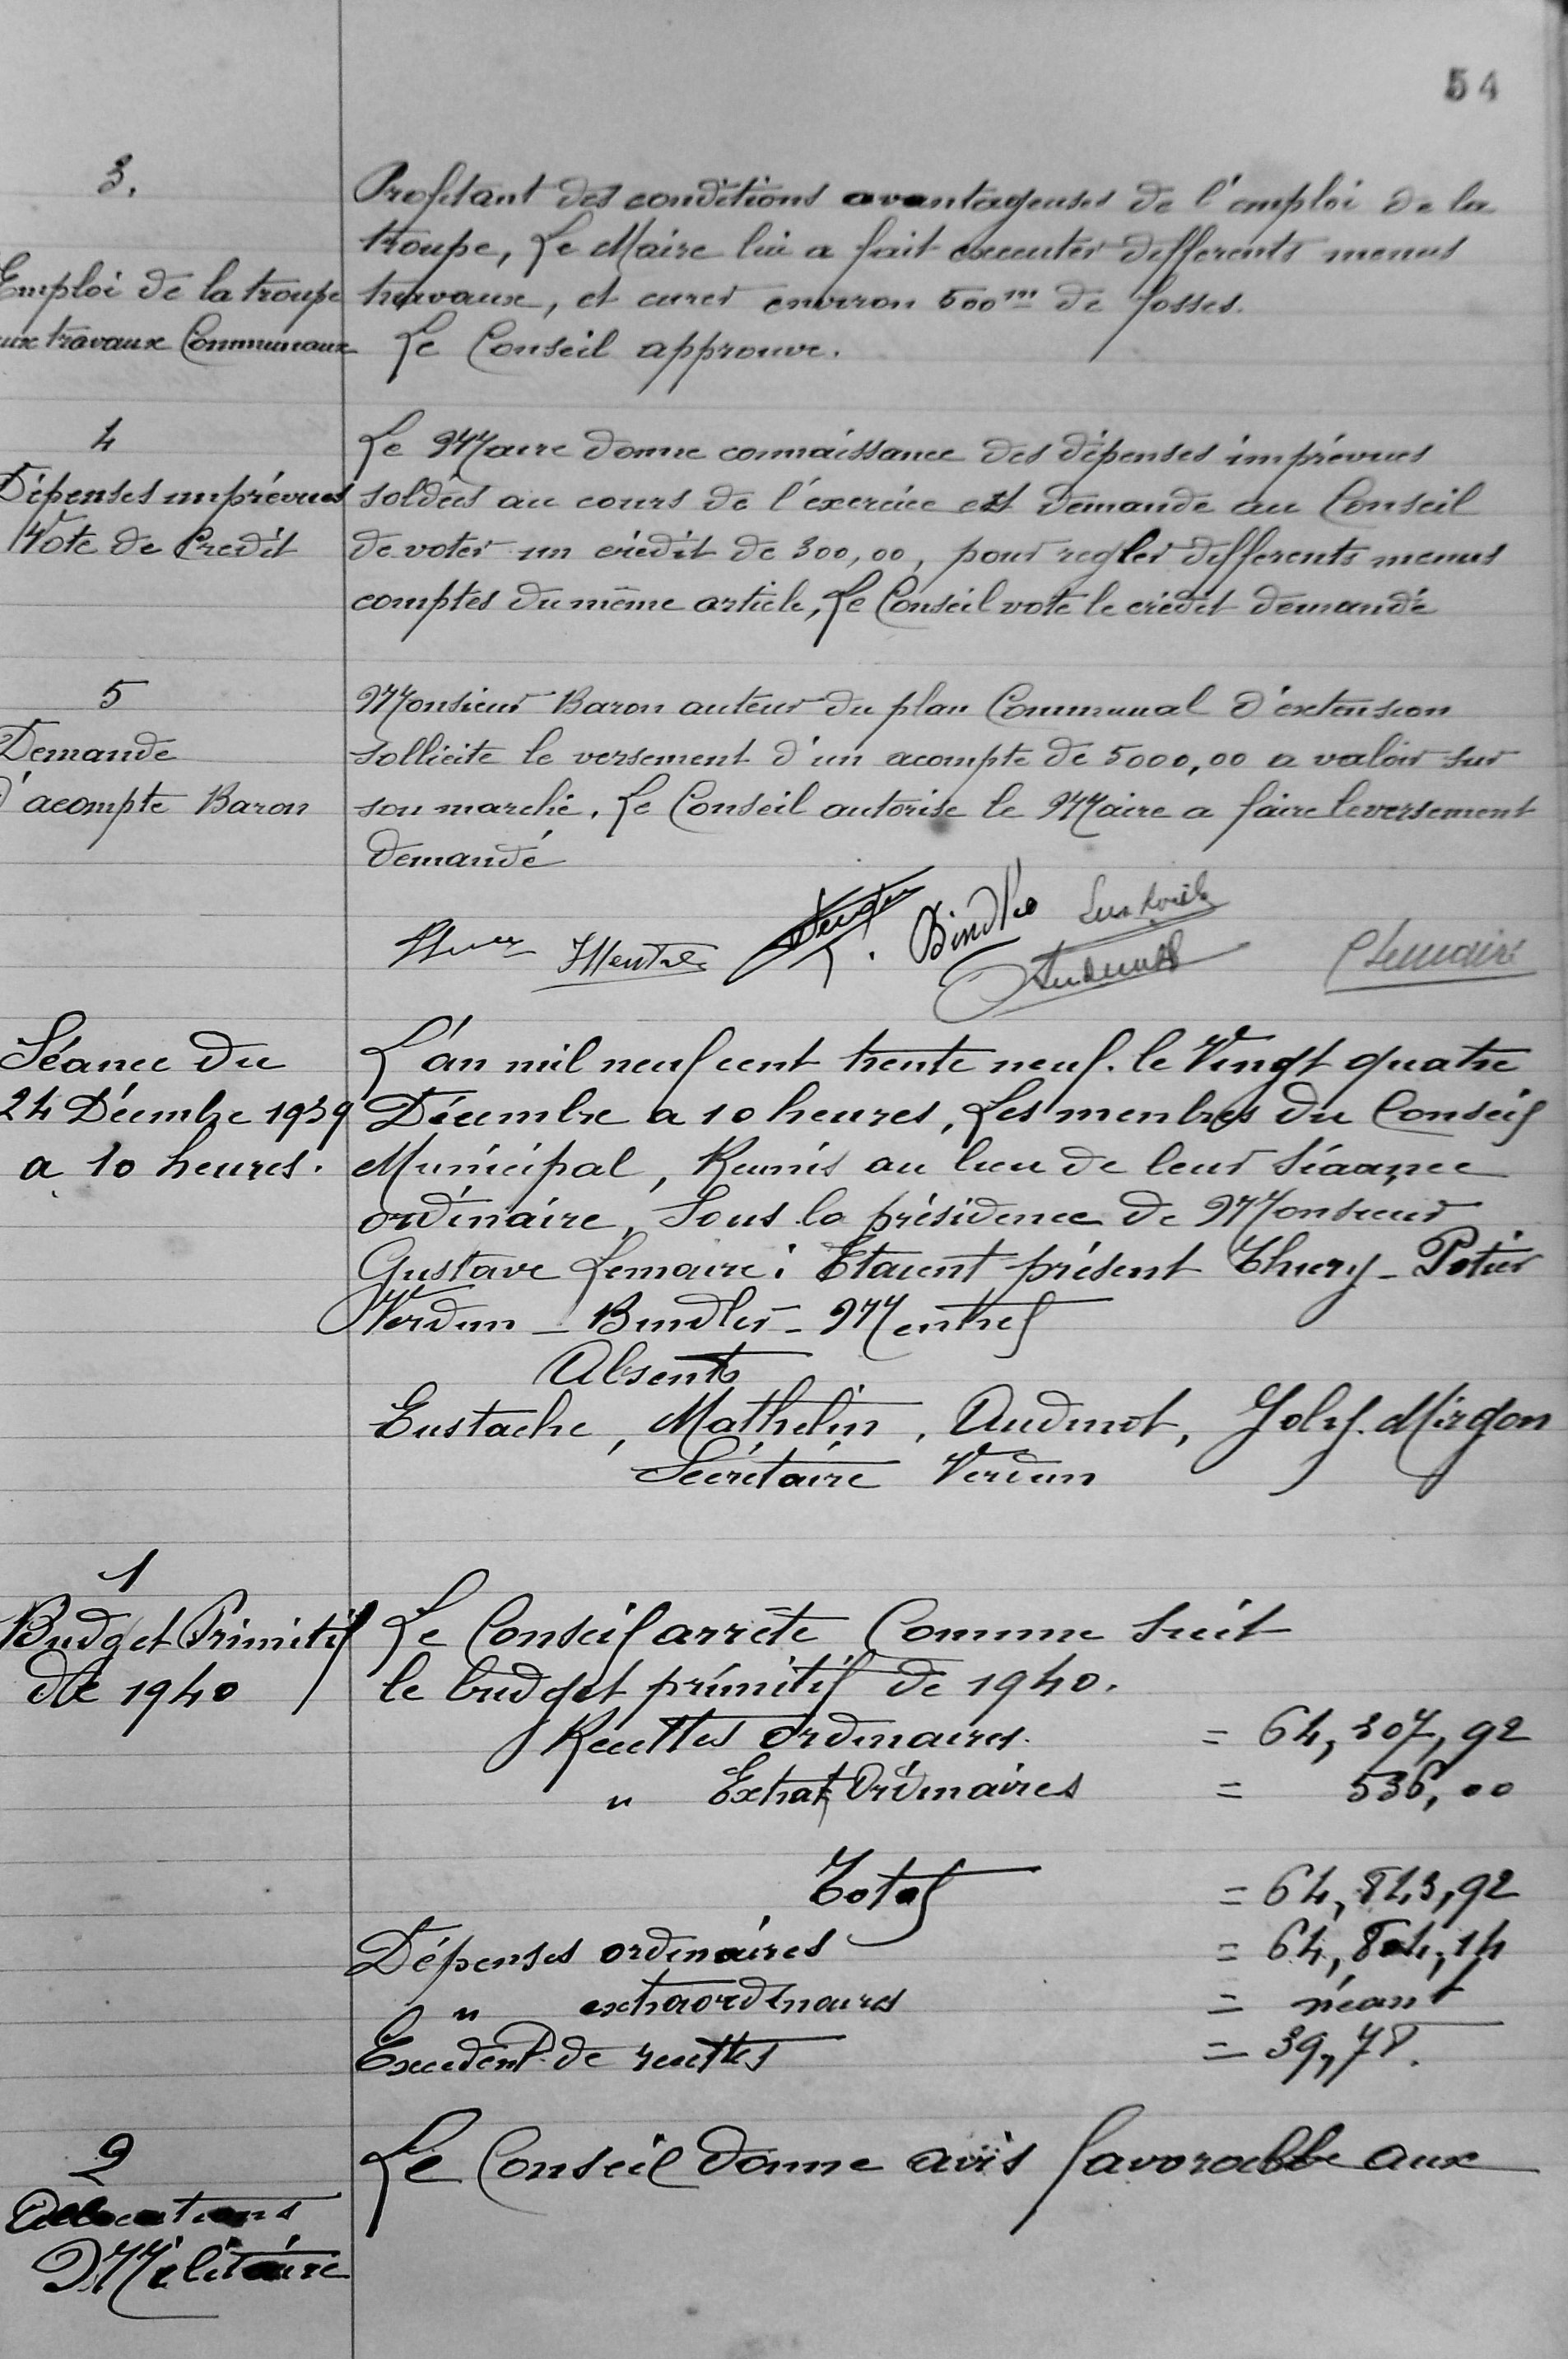 54
3.
Emploi de la troupe
aux travaux Communaux
Profitant des conditions avantageuses de l'emploi de la
troupe, Le Maire lui a fait executer differents menus
travaux, et curer environ 500m de fosses.
Le Conseil approuve.
4
Dépenses imprévues
Vote de Credit
Le Maire donne connaissance des dépenses imprévues
soldées au cours de l'éxercice et demande au Conseil
de voter un crédit de 300,00, pour regler differents menus
comptes du même article, Le Conseil vote le crédit demandé
5
Demande
d'acompte Baron
Monsieur Baron auteur du plan Communal d'éxtension
sollicite le versement d'un acompte de 5000,00 a valoir sur
son marché. Le Conseil autorise le Maire a faire le versement
demandé
Mentré Bindler
Lemaire
Séance du
24 Décembre 1939
a 10 heures.
L'an mil neuf cent trente neuf. le Vingt quatre
Décembre a 10 heures, Les menbres du Conseil
Municipal, Reunis au lieu de leur Séance
ordinaire, Sous la présidence de Monsieur
Gustave Lemaire : Etaient présent Thiery - Potier
Verdun - Bindler - Mentref
Absents
Eustache, Mathelin, Audinot, Joly. Mirgon
Secrétaire Verdun
1
Budget Primitif
de 1940
Le Conseil arrête Comme Suit
le budget primitif de 1940.
Recettes ordinaires. = 64,307,92
" Extra Ordinaires = 536,00
Total = 64,843,92
Dépenses ordinaires = 64,804,14
" extraordinaires = néant
Excedent de recettes = 39,78.
2
Allocations
Militaire
Le Conseil donne avis favorable aux